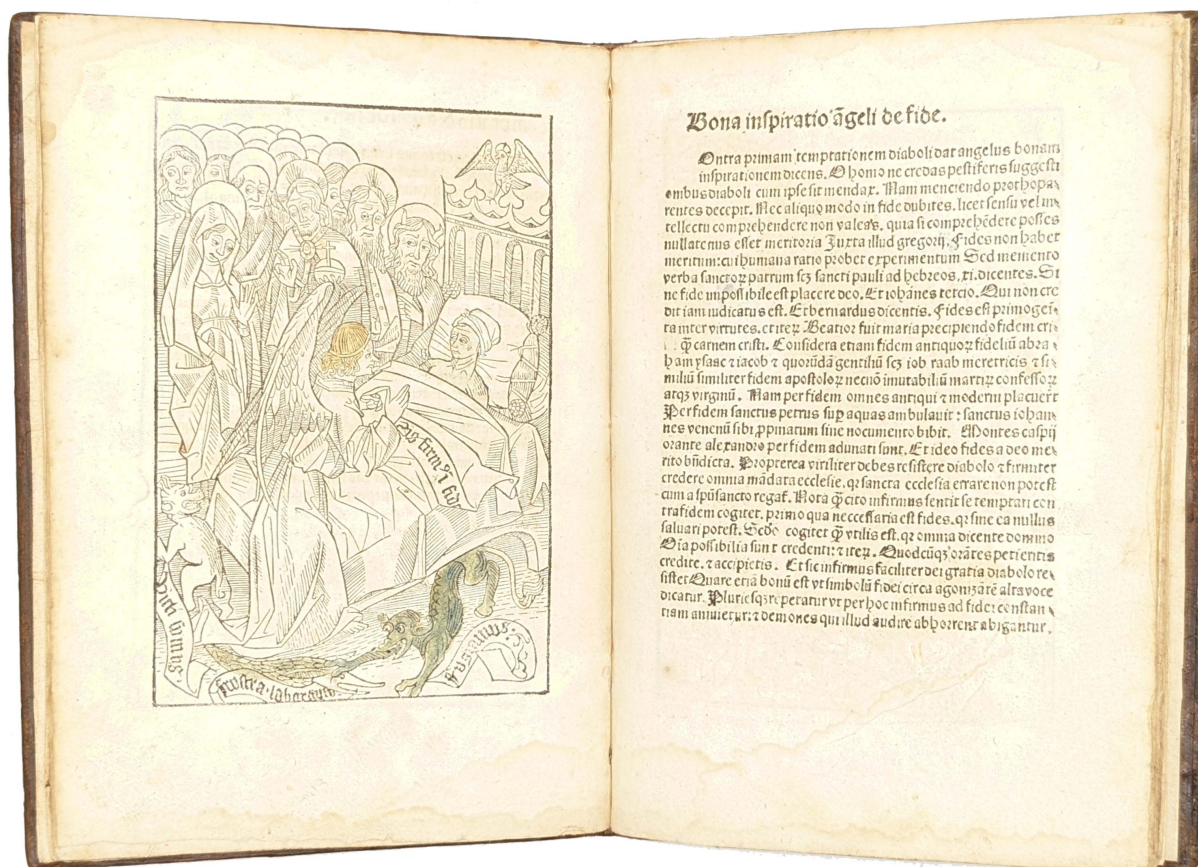 Sis firmꝰ ĩ fide
Victi sumus
frustra laborauimꝰ
fugiamus
Bona inspiratio ãgeli de fide.
Ontra primam temptationem diaboli dat angelus bonam
inspirationem dicens. O homo ne credas pestiferis suggesti
onibus diaboli cum ipse sit mendax. Nam menciendo prothopa⸗
rentes decepit. Nec aliquo modo in fide dubites. licet sensu vel in⸗
tellectu comprehendere non valeas. quia si comprehẽdere posses
nullatenus esset meritoria Juxta illud gregorij. Fides non habet
meritum: cui humana ratio probet experimentum Sed memento
verba sanctoꝝ patrum scꝫ sancti pauli ad hebreos. xi. dicentes. Si
ne fide impossibile est placere deo. Et iohãnes tercio. Qui non cre
dit iam iudicatus est. Et bernardus dicentis. Fides est primogeĩ⸗
ta inter virtutes. et iteꝝ Beatior fuit maria precipiendo fidem cri⸗
q̃ carnem cristi. Considera etiam fidem antiquoꝝ fideliũ abra⸗
ham ysaac ⁊ iacob ⁊ quorũdã gentiliũ scꝫ iob raab meretricis ⁊ si⸗
miliũ similiter fidem apostoloꝝ necnõ imutabiliũ martiꝝ confessoꝝ
atqꝫ virginũ. Nam per fidem omnes antiqui ⁊ moderni placuert̃
Per fidem sanctus petrus sup̱ aquas ambulauit: sanctus iohan⸗
nes venenũ sibi ꝓpinatum sine nocumento bibit. Montes caspij
orante alexandro per fidem adunati sunt. Et ideo fides a deo me⸗
rito bñdicta. Propterea viriliter debes resistere diabolo ⁊ firmiter
credere omnia mãdata ecclesie. qr sancta ecclesia errare non potest
cum a spũsancto regat̃. Nota q̃ cito infirmus sentit se temptari con
tra fidem cogitet. primo qua neccessaria est fides. qr sine ea nullus
saluari potest. Scďo cogitet q̃ vtilis est. qr omnia dicente domino
Oĩa possibilia sunt credenti: ⁊ iteꝝ. Quodcũqꝫ orãtes petieritis
credite. ⁊ accipietis. Et sic infirmus faciliter dei gratia diabolo re⸗
sistet Quare etiã bonũ est vt simbolũ fidei circa agonizãtẽ alta voce
dicatur. Pluriesqꝫ repetatur vt per hoc infirmus ad fidei constan⸗
tiam animetur: ⁊ demones qui illud audire abhorrent abigantur.